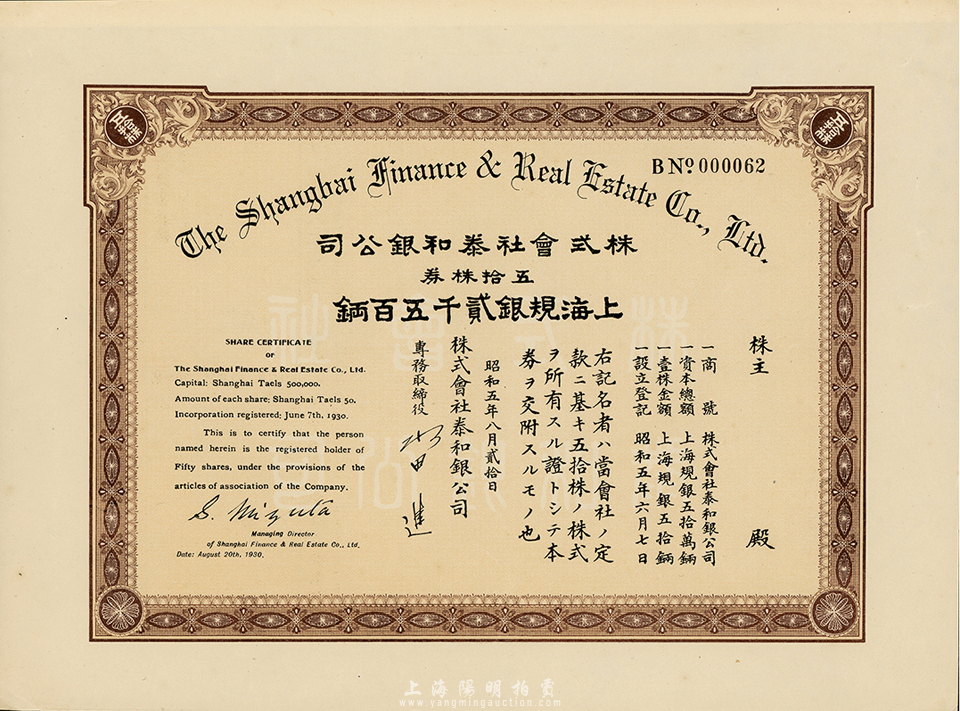 B No. 000062
The Shanghai Finance & Real Estate Co., Ltd.
司公銀和泰社會式株
券株拾五
鋼百五千貳銀規海上
株主 殿
一商號 株式會社泰和銀公司
一資本總額 上海規銀五拾萬鋼
一壹株金額 上海規銀五拾鋼
一設立登記 昭和五年六月七日
右記名者ハ當會社ノ定
款ニ基キ五拾株ノ株式
ヲ所有スル證トシテ本
券ヲ交附スルモノ也
昭和五年八月貳拾日
株式會社泰和銀公司
專務取締役
SHARE CERTIFICATE
OF
The Shanghai Finance & Real Estate Co., Ltd.
Capital: Shanghai Taels 500,000.
Amount of each share: Shanghai Taels 50.
Incorporation registered: June 7th, 1930.
This is to certify that the person
named herein is the registered holder of
Fifty shares, under the provisions of the
articles of association of the Company.
S. Mizuta
Managing Director
of Shanghai Finance & Real Estate Co., Ltd.
Date: August 20th, 1930.
上海陽明拍賣
www.yangmingauction.com